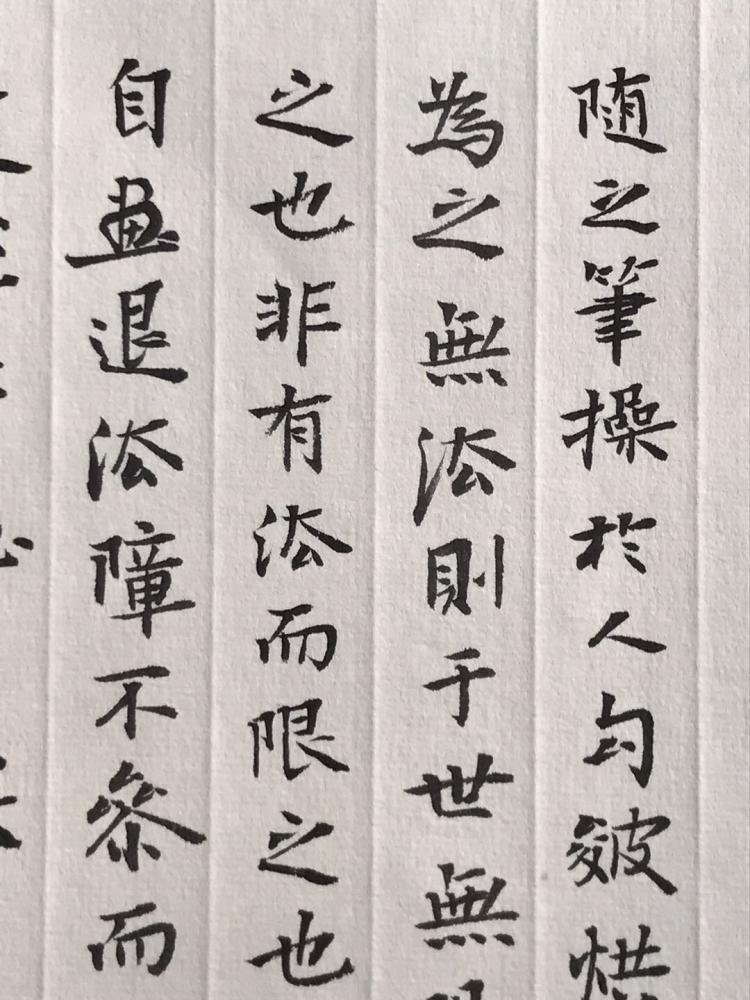 随之筆操於人勾皴烘
為之無法則于世無限
之也非有法而限之也
自画退法障不叅而